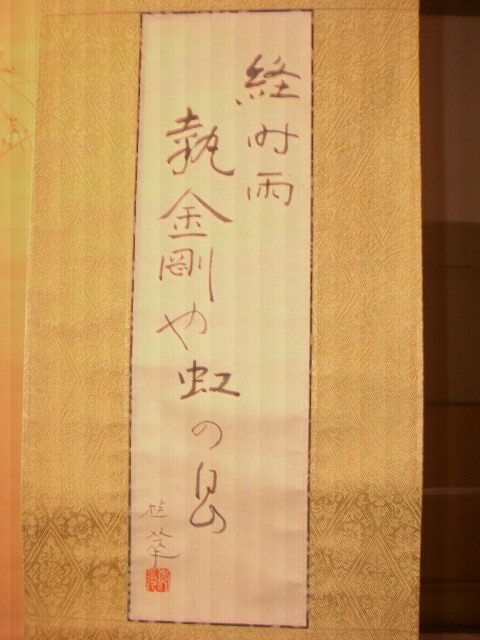 経時雨
執金剛や虹の